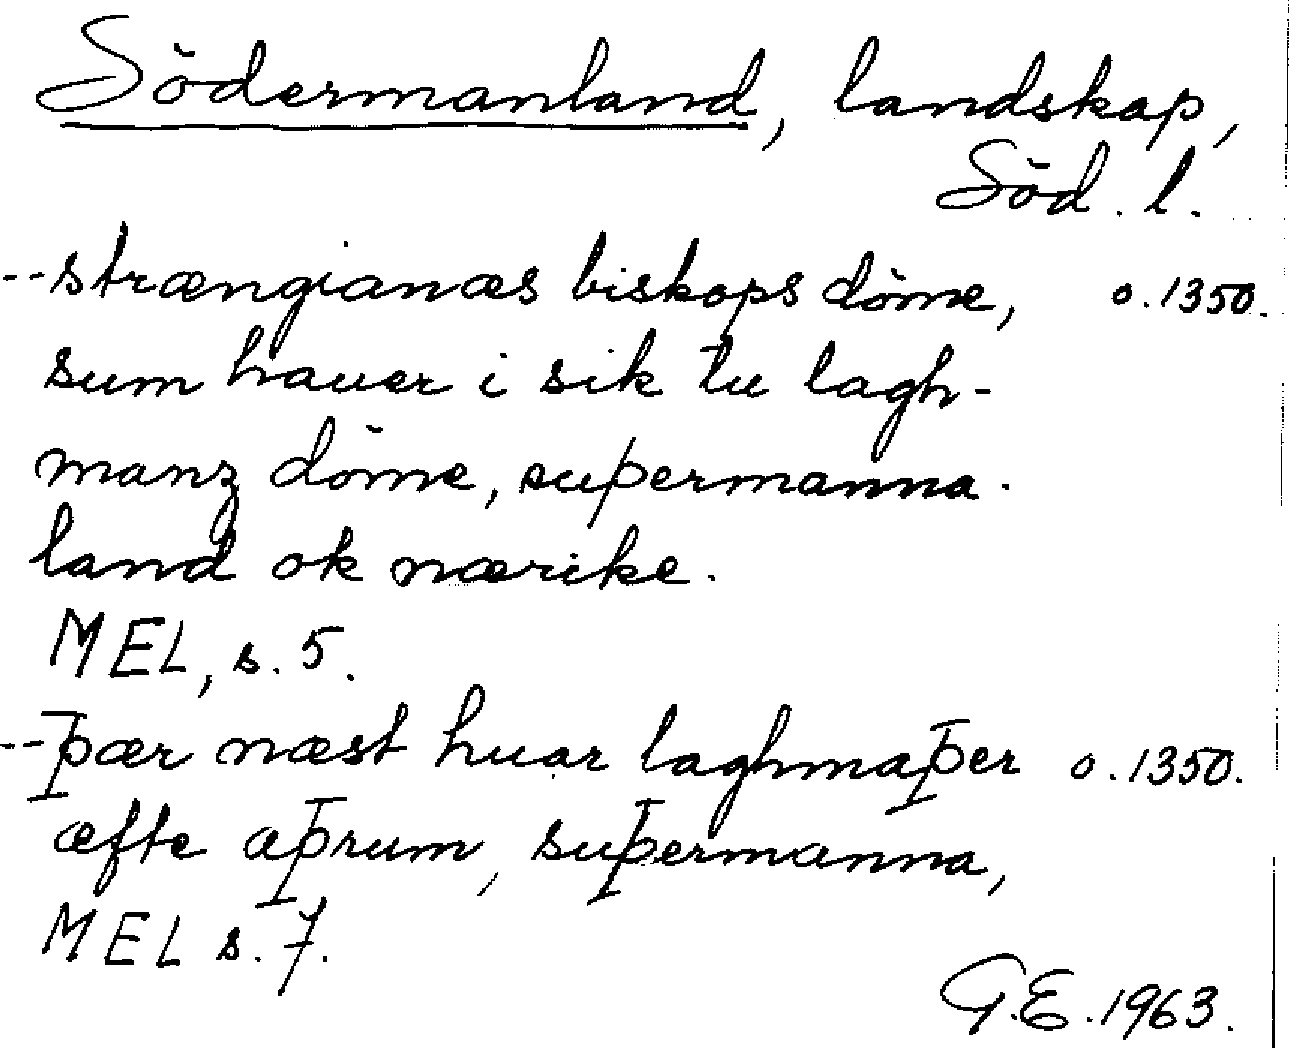 Södermanland, landskap,
Söd. l.
--strængianæs biskops döme, o. 1350.
sum hauer i sik tu lagh-
manz döme, suþermanna.
land ok nærike.
MEL, s. 5.
--þær næst huar laghmaþer o. 1350.
æfte aþrum, suþermanna,
MEL s. 7.
G.E. 1963.